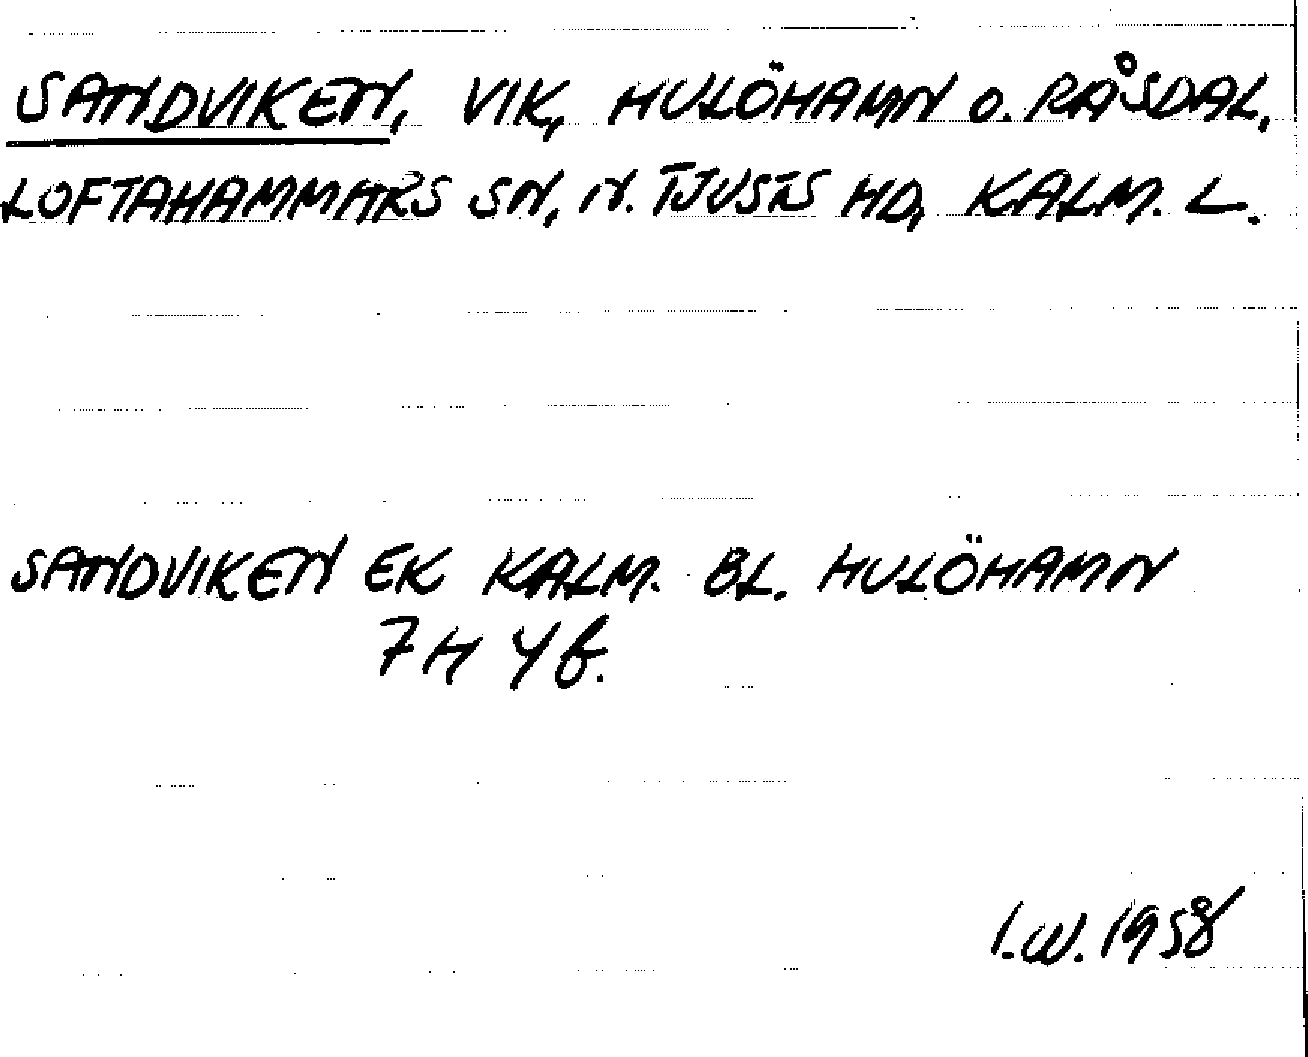 SANDVIKEN, VIK, HULÖHAMN O. RÅSDAL,
LOFTAHAMMARS SN, N. TJUSTS HD, KALM. L.
SANDVIKEN EK KALM. BL. HULÖHAMN
7H 4f.
I.W. 1958